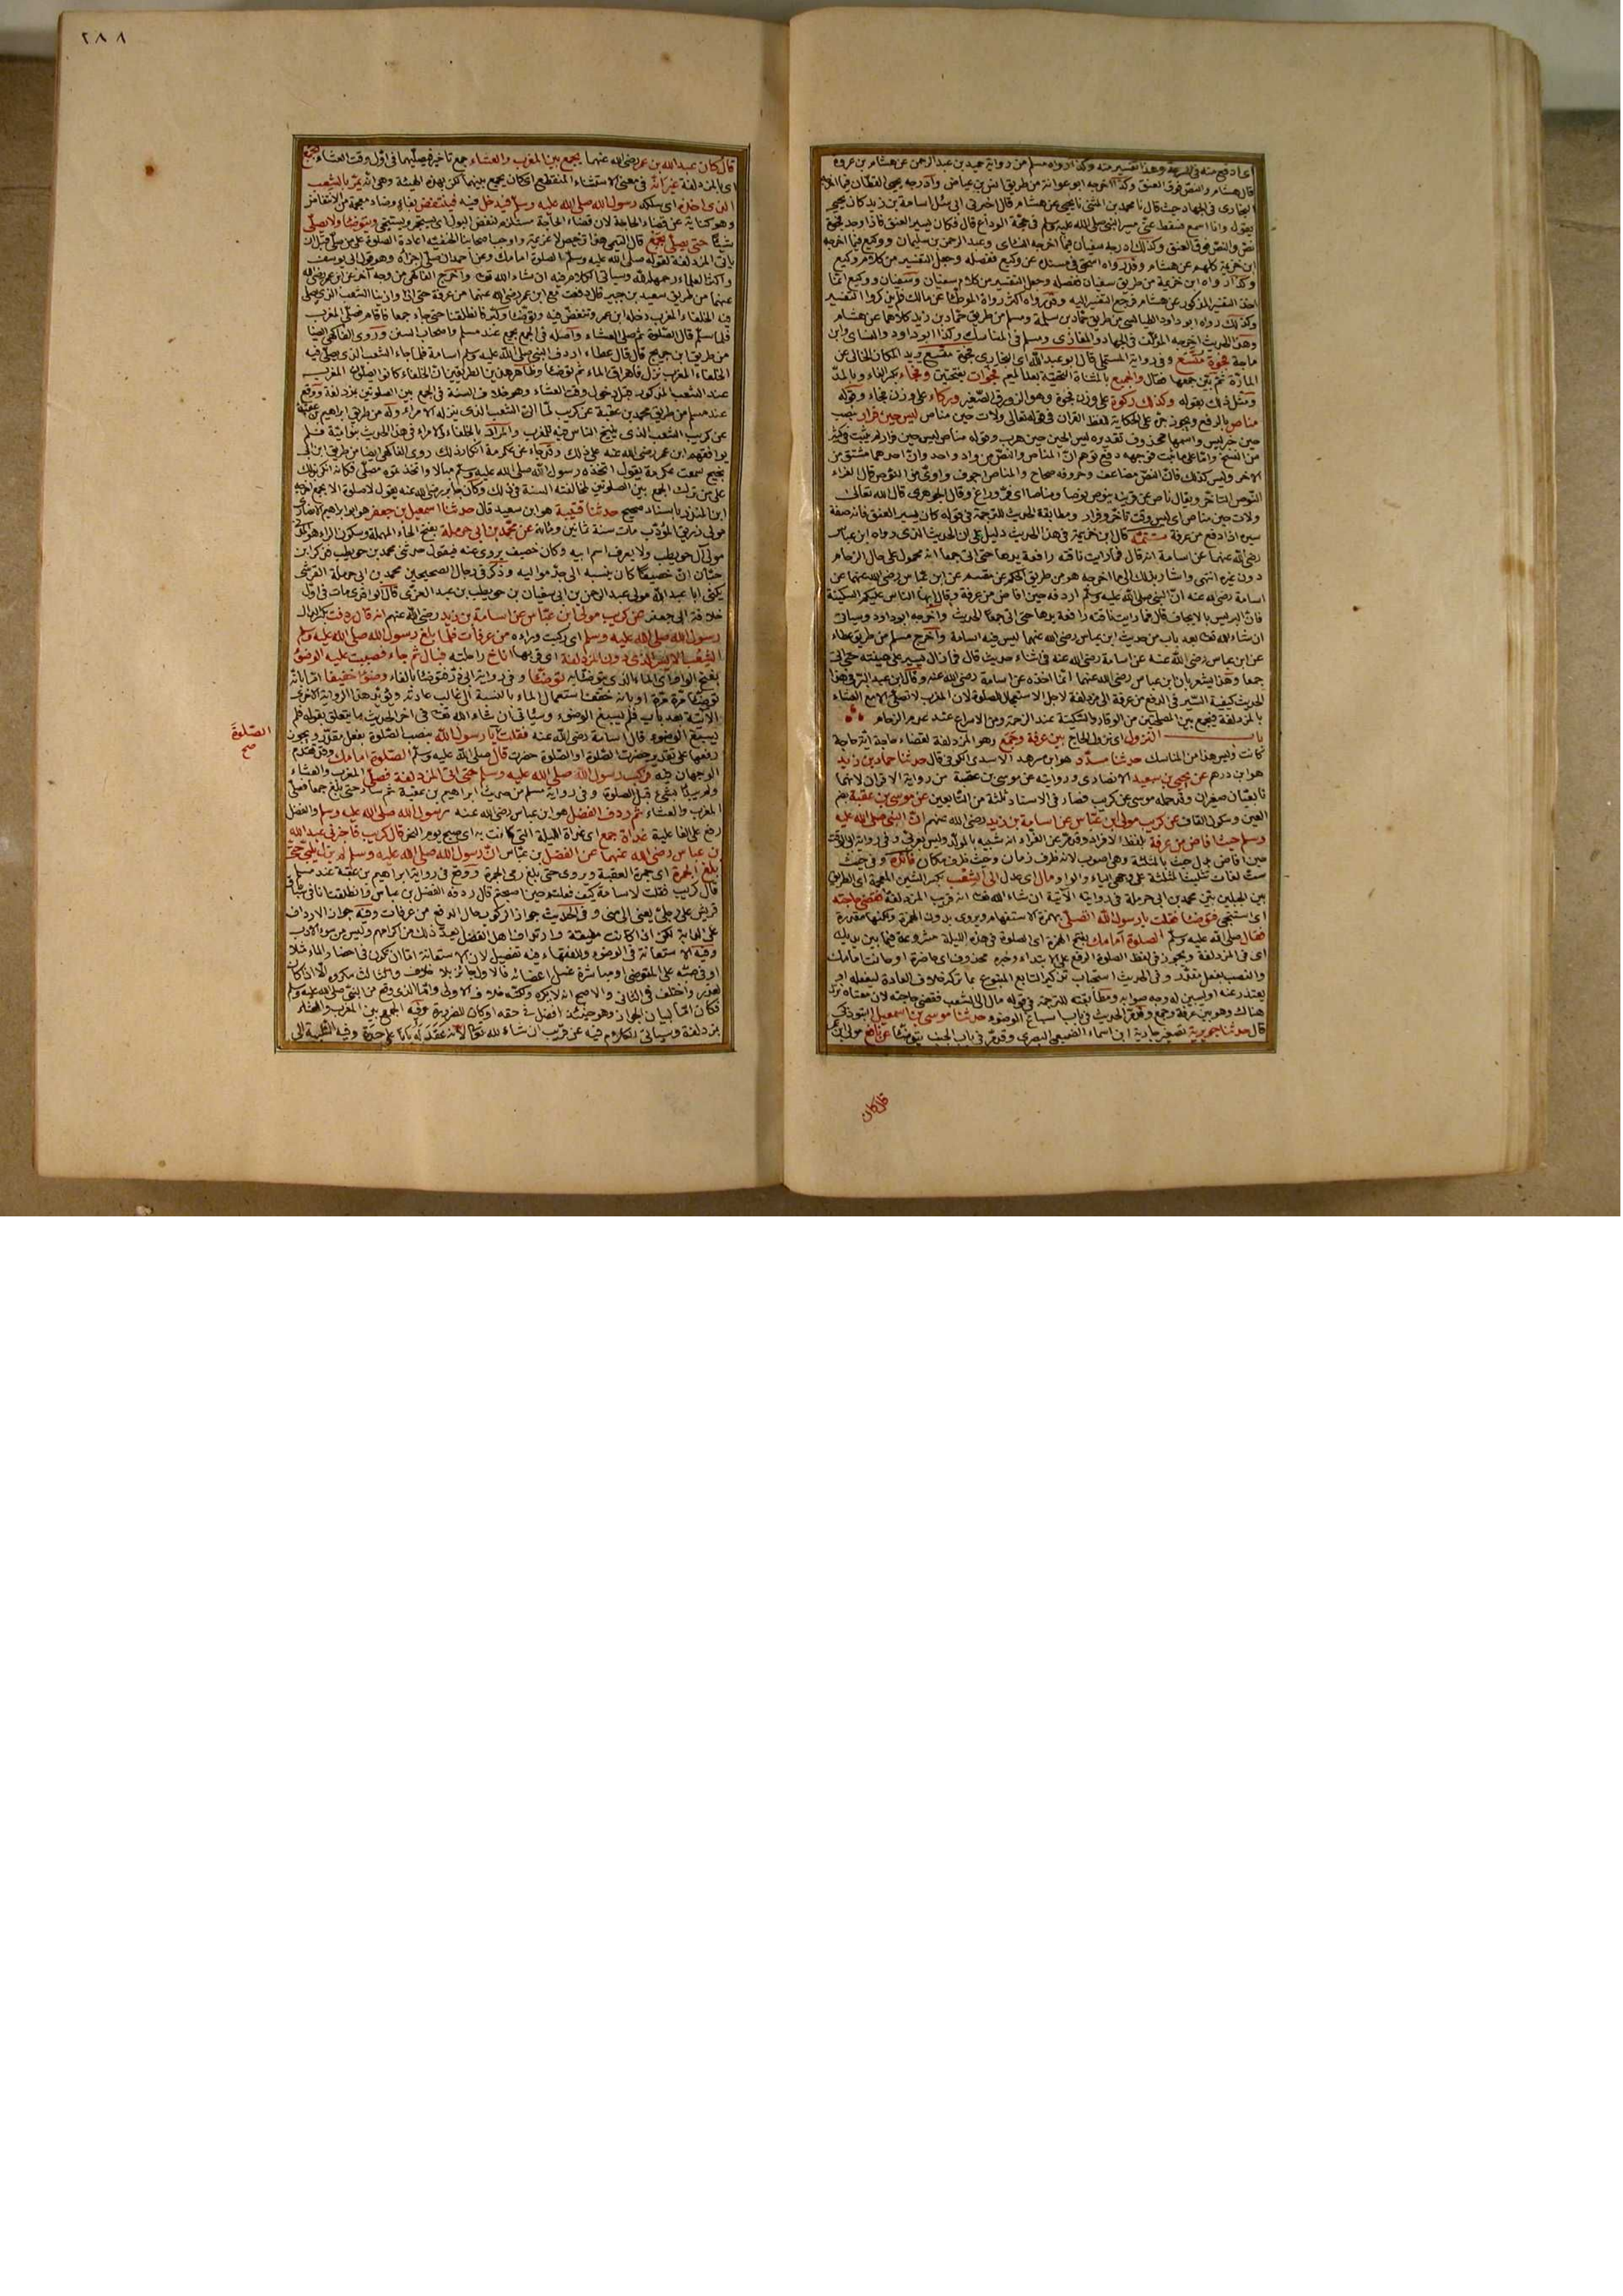 اى ادفع منه فى السرعة وهذا تفسير منه وكذا رواه مسلم من رواية حميد بن عبد الرحمن عن هشام بن عروة
قال هشام والنص فوق العنق وكذا اخرجه ابو عوانة من طريق انس بن عياض وادرجه يحيى القطان فيما اخرجه
البخارى فى الجهاد حيث قال نا محمد بن المثنى نا يحيى عن هشام قال اخبرنى ابى سئل اسامة بن زيد كان يحيى
يقول وانا اسمع فسقط عنى مسير النبى صلى الله عليه وسلم فى حجة الوداع قال فكان يسير العنق فاذا وجد فجوة
نص والنص فوق العنق وكذلك ادرجه سفيان فيما اخرجه النسائى وعبد الرحمن بن سليمان ووكيع فيما اخرجه
ابن خزيمة كلهم عن هشام وقد رواه اسحق فى مسنده عن وكيع ففصله وجعل التفسير من كلام وكيع
وكذا رواه ابن خزيمة من طريق سفيان ففصله وجعل التفسير من كلام سفيان وسفيان ووكيع انما
اخذا التفسير المذكور عن هشام فرجع التفسير اليه وقد رواه اكثر رواة الموطأ عن مالك فلم يذكروا التفسير
وكذلك رواه ابو داود الطيالسى من طريق حماد بن سلمة ومسلم من طريق حماد بن زيد كلاهما عن هشام
وهذا الحديث اخرجه المؤلف فى الجهاد والمغازى ومسلم فى المناسك وكذا ابو داود والنسائى وابن
ماجة فجوة متسع وفى رواية المستملى قال ابو عبد الله اى البخارى فجوة متسع يريد المكان الخالى عن
المارة ثم بين جمعها فقال والجميع بالمثناة التحتية بعد الميم فجوات بفتحتين وفجاء بكسر الفاء وبالمد
ومثل ذلك بقوله وكذلك ركوة على وزن فجوة وهو الزورق الصغير وركاء على وزن فجاء وقوله
مناص بالرفع ويجوز جره على الحكاية لفظ القران فى قوله تعالى ولات حين مناص ليس حين فرار بنصب
حين خبر ليس واسمها محذوف تقديره ليس الحين حين هرب وقوله مناص ليس حين فرار لم يثبت فى كثير
من النسخ واما على ما ثبت فوجهه دفع توهم ان المناص والنص من واد واحد وان احدهما مشتق من
الاخر وليس كذلك فان النص مضاعف وحروفه صحاح والمناص اجوف واوى من النوص قال الفراء
النوص التاخر ويقال ناص عن قرنه ينوص نوصا ومناصا اى فر وراغ وقال الجوهرى قال الله تعالى
ولات حين مناص اى ليس وقت تاخر وفرار ومطابقة الحديث للترجمة فى قوله كان يسير العنق فانه صفة
سيره اذا دفع من عرفة تتمة قال ابن خزيمة فى هذا الحديث دليل على ان الحديث الذى رواه ابن عباس
رضى الله عنهما عن اسامة انه قال فما رايت ناقته رافعة يدها حتى اتى جمعا انه محمول على حال الزحام
دون غيره انتهى واشار بذلك الى ما اخرجه هو من طريق الحكم عن مقسم عن ابن عباس رضى الله عنهما عن
اسامة رضى الله عنه ان النبى صلى الله عليه وسلم اردفه حين افاض من عرفة وقال ايها الناس عليكم السكينة
فان البر ليس بالايجاف قال فما رايت ناقته رافعة يدها حتى اتى جمعا الحديث واخرجه ابو داود وسياتى
ان شاء الله تعالى بعد باب من حديث ابن عباس رضى الله عنهما ليس فيه اسامة واخرج مسلم من طريق عطاء
عن ابن عباس رضى الله عنه عن اسامة رضى الله عنه فى اثناء حديث قال فما زال يسير على هينته حتى اتى
جمعا وهذا يشعر بان ابن عباس رضى الله عنهما انما اخذه عن اسامة رضى الله عنه وقال ابن عبد البر فى هذا
الحديث كيفية السير فى الدفع من عرفة الى مزدلفة لاجل الاستعجال للصلوة لان المغرب لا تصلى الا مع العشاء
بالمزدلفة فيجمع بين المصلحتين من الوقار والسكينة عند الزحمة ومن الاسراع عند عدم الزحام
باب النزول اى نزول الحاج بين عرفة وجمع وهو المزدلفة لقضاء حاجة اية حاجة
كانت وليس هذا من المناسك حدثنا مسدد هو ابن مسرهد الاسدى الكوفى قال حدثنا حماد بن زيد
هو ابن درهم عن يحيى بن سعيد الانصارى وروايته عن موسى بن عقبة من رواية الاقران لانهما
تابعيان صغيران وقد حمله موسى عن كريب فصار فى الاسناد ثلثة من التابعين عن موسى بن عقبة بضم
العين وسكون القاف عن كريب مولى ابن عباس عن اسامة بن زيد رضى الله عنهم ان النبى صلى الله عليه
وسلم حيث افاض من عرفة
حين افاض بدل حيث بالمثلثة وهى اصوب لانه ظرف زمان وحيث ظرف مكان فائدة وفى حيث
ست لغات تثليث المثلثة على وجهى الياء والواو مال اى عدل الى الشعب بكسر الشين المعجمة اى الطريق
بين الجبلين بين محمد بن ابى حرملة فى روايته الاتية ان شاء الله تعالى انه قريب المزدلفة فقضى حاجته
اى استنجى فتوضأ فقلت يا رسول الله اتصلى بهمزة الاستفهام ويروى بدون الهمزة ولكنها مقدرة
فقال صلى الله عليه وسلم الصلوة امامك بفتح الهمزة اى الصلوة فى هذه الليلة مشروعة فيما بين يديك
اى فى المزدلفة ويجوز فى لفظ الصلوة الرفع على الابتداء وخبره محذوف اى حاضرة او حانت امامك
والنصب بفعل مقدر وفى الحديث استحباب تذكير التابع المتبوع بما تركه خلاف العادة ليفعله او
يعتذر عنه او يبين له وجه صوابه ومطابقته للترجمة فى قوله مال الى الشعب فقضى حاجته لان معناه نزل
هناك وهو بين عرفة وجمع وقد مر الحديث فى باب اسباغ الوضوء حدثنا موسى بن اسمعيل التبوذكى
قال حدثنا جويرية تصغير جارية ابن اسماء الضبعى البصرى وقد مر فى باب الجنب يتوضأ عن نافع مولى ابن عمر
قال كان
٢٨٨
قال كان عبد الله بن عمر رضى الله عنهما يجمع بين المغرب والعشاء جمع تاخير فيصليهما فى اول وقت العشاء بجمع
اى بالمزدلفة غير انه فى معنى الاستثناء المنقطع اى كان يجمع بينهما لكن بهذه الهيئة وهى انه يمر بالشعب
الذى اخذه اى سلكه رسول الله صلى الله عليه وسلم فيدخل فيه فينتفض بفاء وضاد معجمة من الانتفاض
وهو كناية عن قضاء الحاجة لان قضاء الحاجة مستلزم لنفض البول اى يستجمر ويستنجى ويتوضأ ولا يصلى
شيئا حتى يصلى بجمع قال التيمى هذا ترخيص لا عزيمة واوجب اصحابنا الحنفية اعادة الصلوة على من صلى قبل ان
ياتى المزدلفة لقوله صلى الله عليه وسلم الصلوة امامك وعن احمد ان صلى اجزأه وهو قول ابى يوسف
واكثر العلماء رحمهم الله وسياتى الكلام فيه ان شاء الله تعالى واخرج الفاكهى من وجه اخر عن ابن عمر رضى الله
عنهما من طريق سعيد بن جبير قال دفعت مع ابن عمر رضى الله عنهما من عرفة حتى اذا وازينا الشعب الذى يصلى
فيه الخلفاء المغرب دخله ابن عمر وتنفض فيه وتوضأ وكبر فانطلقنا حتى جاء جمعا فاقام فصلى المغرب
فلما سلم قال الصلوة ثم صلى العشاء واصله فى الجمع بجمع عند مسلم واصحاب السنن وروى الفاكهى ايضا
من طريق ابن جريج قال قال عطاء اردف النبى صلى الله عليه وسلم اسامة فلما جاء الشعب الذى يصلى فيه
الخلفاء المغرب نزل فاهراق الماء ثم توضأ وظاهر هذين الطريقين ان الخلفاء كانوا يصلون المغرب
عند الشعب المذكور قبل دخول وقت العشاء وهو خلاف السنة فى الجمع بين الصلوتين بمزدلفة ووقع
عند مسلم من طريق محمد بن عقبة عن كريب لما اتى الشعب الذى ينزله الامراء وله من طريق ابراهيم بن عقبة
عن كريب الشعب الذى ينيخ الناس فيه للمغرب والمراد بالخلفاء والامراء فى هذا الحديث بنو امية فلم
يوافقهم ابن عمر رضى الله عنه على ذلك وقد جاء عن عكرمة انكار ذلك روى الفاكهى ايضا من طريق ابن ابى
نجيح سمعت عكرمة يقول اتخذه رسول الله صلى الله عليه وسلم مبالا واتخذتموه مصلى فكانه انكر بذلك
على من ترك الجمع بين الصلوتين لمخالفته السنة فى ذلك وكان جابر رضى الله عنه يقول لا صلوة الا بجمع اخرجه
ابن المنذر باسناد صحيح حدثنا قتيبة هو ابن سعيد قال حدثنا اسمعيل بن جعفر هو ابو ابراهيم الانصارى
مولى زريق المؤدب مات سنة ثمانين ومائة عن محمد بن ابى حرملة بفتح الحاء المهملة وسكون الراء
مولى آل حويطب ولا يعرف اسم ابيه وكان خصيف يروى عنه فيقول حدثنى محمد بن حويطب فذكر ابن
حبان ان خصيفا كان ينسبه الى جد مواليه وذكر فى رجال الصحيحين محمد بن ابى حرملة القرشى
يكنى ابا عبد الله مولى عبد الرحمن بن ابى سفيان بن حويطب بن عبد العزى قال الواقدى مات فى اول
خلافة ابى جعفر عن كريب مولى ابن عباس عن اسامة بن زيد رضى الله عنهم انه قال ردفت بكسر الدال
رسول الله صلى الله عليه وسلم اى ركبت وراءه من عرفات فلما بلغ رسول الله صلى الله عليه وسلم
الشعب الايسر الذى دون المزدلفة اى قربها اناخ راحلته فبال ثم جاء فصببت عليه الوضوء
بفتح الواو اى الماء الذى يتوضأ به توضأ وفى رواية ابى ذر فتوضأ بالفاء وضوءا خفيفا اما بانه
توضأ مرة مرة او بانه خفف استعمال الماء بالنسبة الى غالب عادته ويؤيد هذا الرواية الاخرى
الاتية بعد باب فلم يسبغ الوضوء وسياتى ان شاء الله تعالى فى اخر الحديث ما يتعلق بقوله فلم
يسبغ الوضوء قال اسامة رضى الله عنه فقلت يا رسول الله بنصب الصلوة بفعل مقدر ويجوز
الصلوة
صح
رفعها على تقدير حضرت الصلوة او الصلوة حضرت قال صلى الله عليه وسلم الصلوة امامك وقد تقدم
الوجهان فيه فركب رسول الله صلى الله عليه وسلم حتى اتى المزدلفة فصلى المغرب والعشاء
ولم يبدأ بشئ قبل الصلوة وفى رواية مسلم من حديث ابراهيم بن عقبة ثم سار حتى بلغ جمعا فصلى
المغرب والعشاء ثم ردف الفضل هو ابن عباس رضى الله عنه رسول الله صلى الله عليه وسلم والفضل
رفع على الفاعلية غداة جمع اى غداة الليلة التى كانت به اى صبح يوم النحر قال كريب فاخبرنى عبد الله
بن عباس رضى الله عنهما عن الفضل بن عباس ان رسول الله صلى الله عليه وسلم لم يزل يلبى حتى
بلغ الجمرة اى جمرة العقبة ويروى حتى بلغ رمى الجمرة ووقع فى رواية ابراهيم بن عقبة عند مسلم
قال كريب فقلت لاسامة كيف فعلتم حين اصبحتم قال ردفه الفضل بن عباس وانطلقت انا فى سباق
قريش على رجلى يعنى الى منى وفى الحديث جواز الركوب حال الدفع من عرفات وفيه جواز الارداف
على الدابة لكن اذا كانت مطيقة وارتداف اهل الفضل يعد ذلك من اكرامهم وليس من سوء الادب
وفيه الاستعانة فى الوضوء وللفقهاء فيه تفصيل لان الاستعانة اما ان تكون فى احضار الماء مثلا
او فى صبه على المتوضى او مباشرة غسل اعضائه فالاول جائز بلا خلاف والثالث مكروه الا ان كان
لعذر واختلف فى الثانى والاصح انه لا يكره ولكنه خلاف الاولى واما الذى وقع من النبى صلى الله عليه وسلم
فكان اما لبيان الجواز وهو حينئذ افضل فى حقه او كان للضرورة وفيه الجمع بين المغرب والعشاء
بمزدلفة وسياتى الكلام فيه عن قريب ان شاء الله تعالى لانه عقد له بابا على حدة وفيه التلبية الى